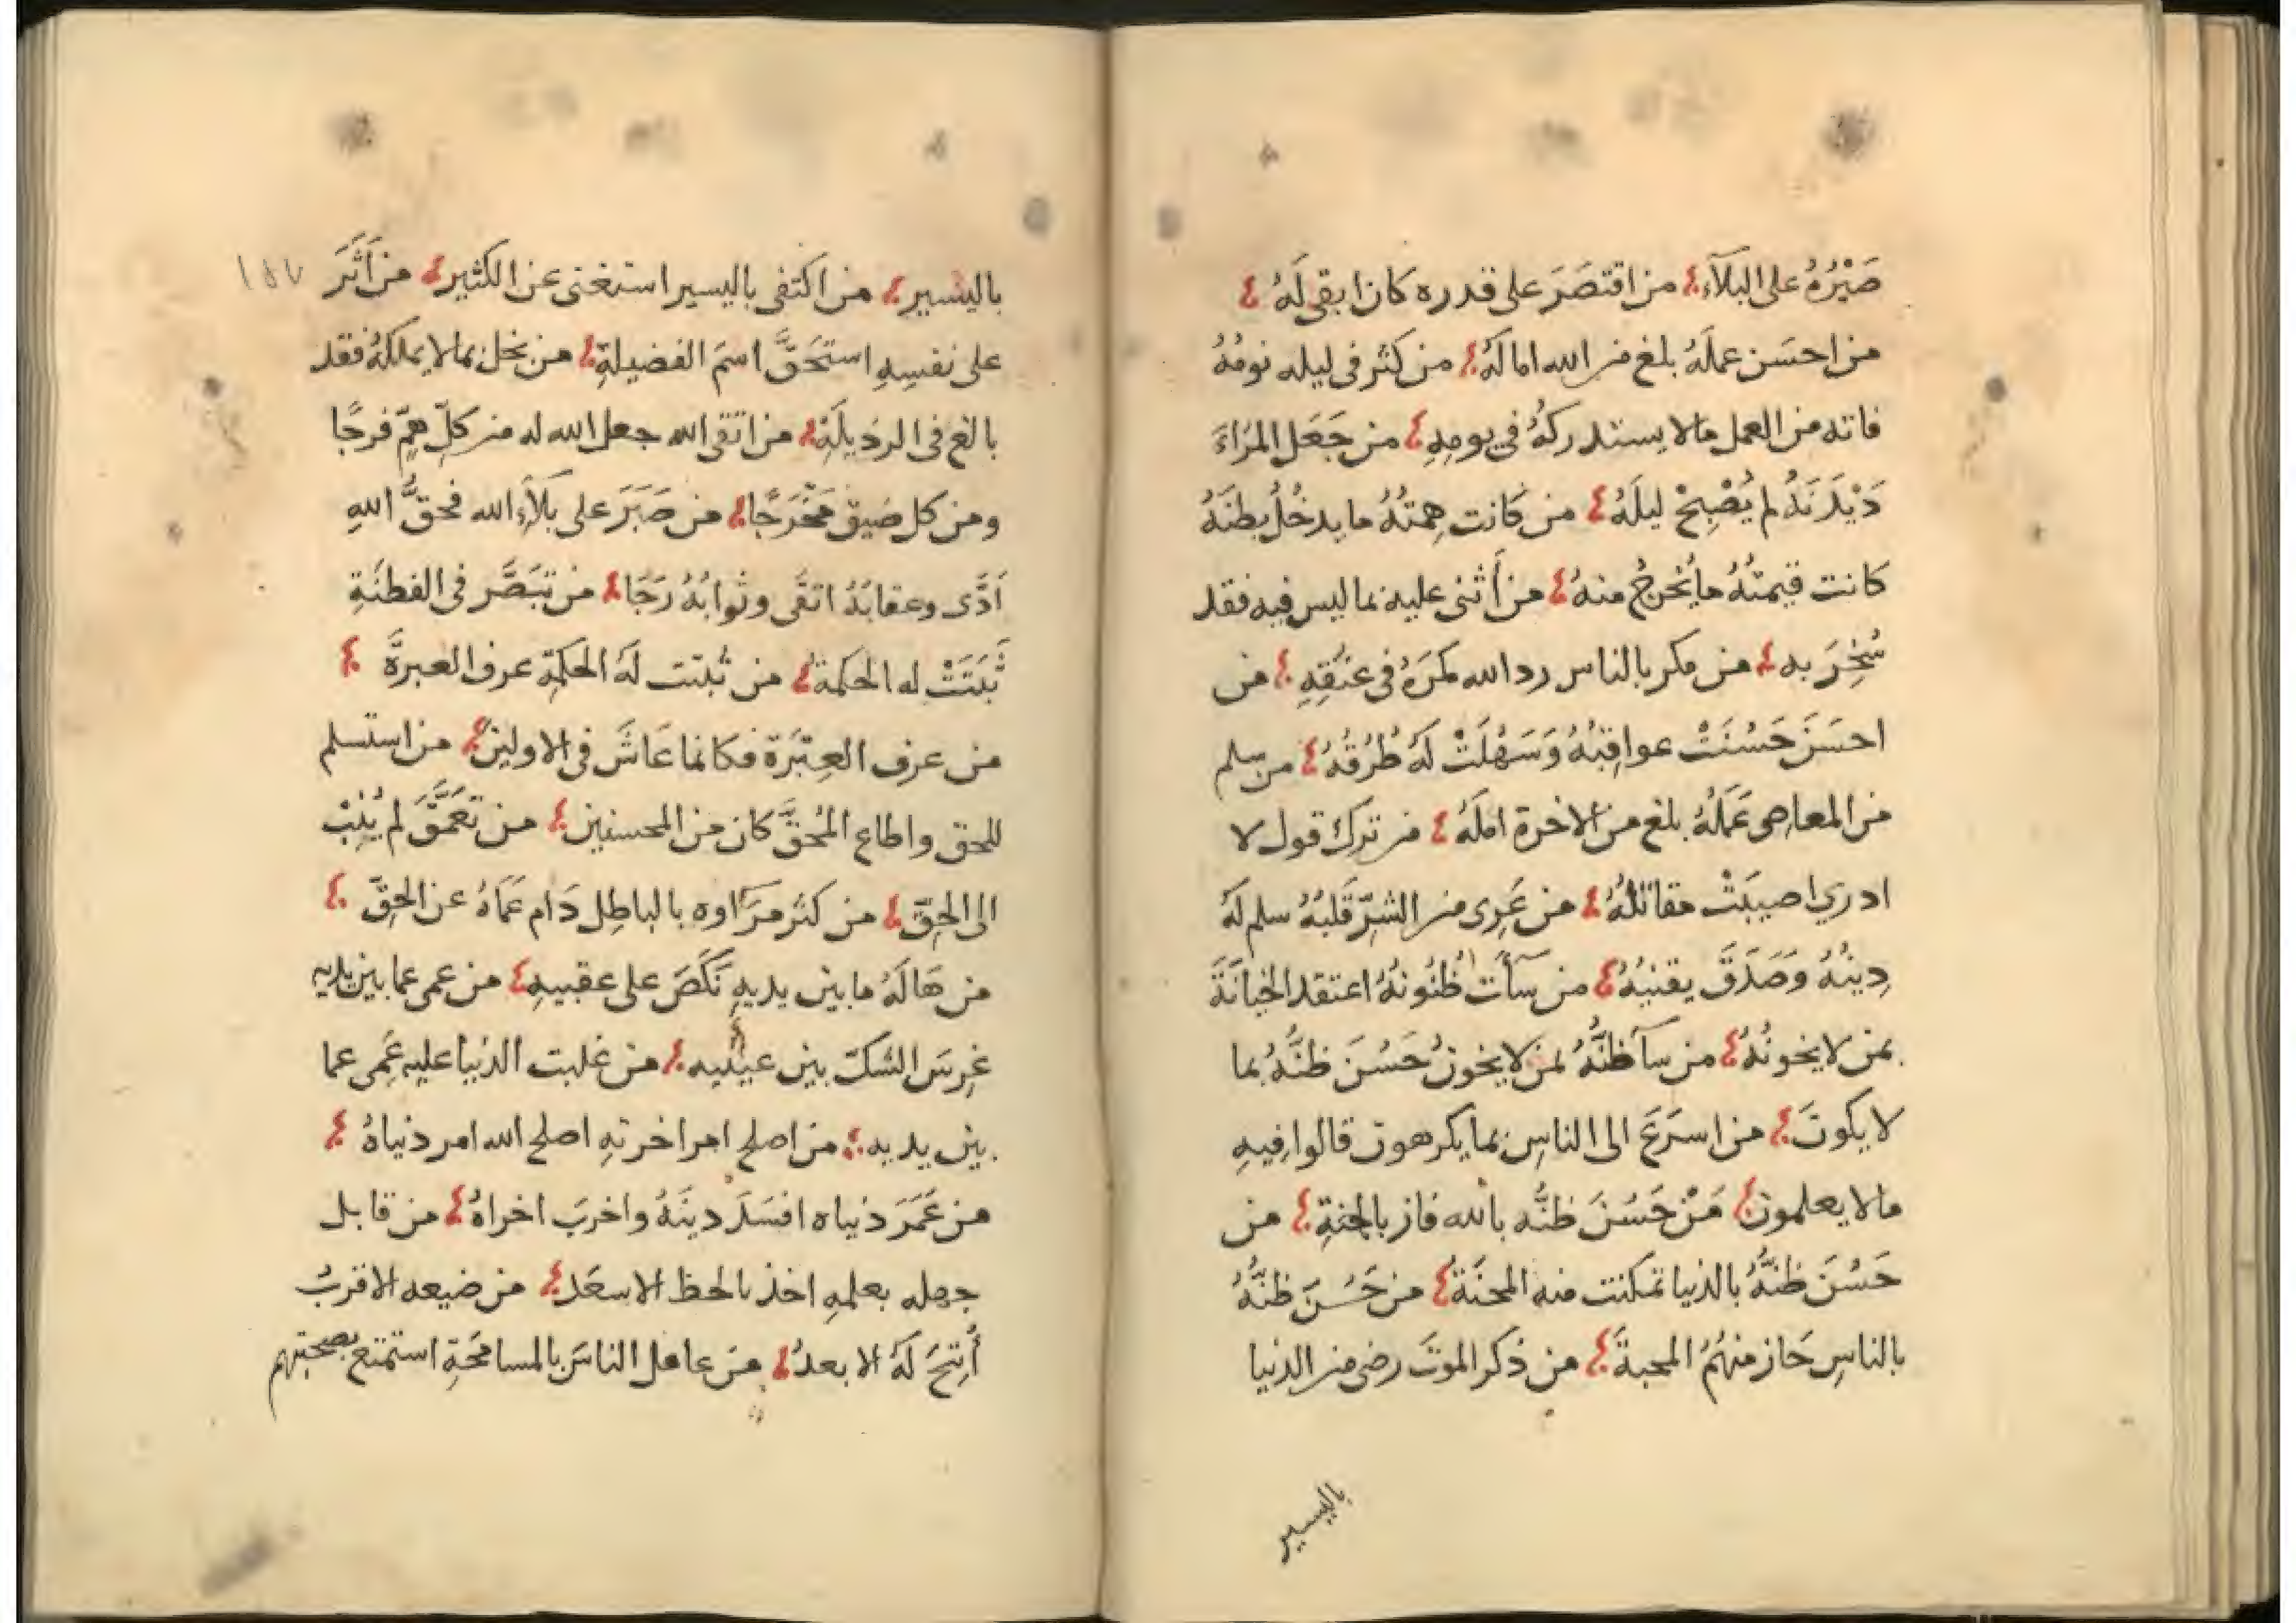 صَبْرُهُ على البَلَآءِ من اقتصَرَ على قدره كان ابقى لَهُ
من احسَن عملَهُ بلغ من الله اماله من كثر فى ليله نومُهُ
فاته من العمل مالا يستدركهُ في يومِهِ من جَعَل المرَاءَ
دَيْدَنَهُ لم يُصْبِحْ ليلَهُ من كانت هِمتُهُ ما يدخُلُ بطنَهُ
كانت قيمتُهُ ما يُخرجُ منهُ من أَثنى عليه بما ليس فيه فقد
سُخِرَ به من مكر بالناس رد الله مكرَهُ فى عنُقِهِ من
احسَنَ حَسُنَتْ عواقِبُهُ وَسَهُلَتْ لَهُ طُرُقُهُ من سلم
من المعاصى عَمَلُهُ بلغ من الاخرة املَهُ من ترك قول لا
ادري اصيبَتْ مقاتلُهُ من عَرِى من الشرّ قَلبُهُ سلم لَهُ
دِينُهُ وَصَدَقَ يقنيُهُ من سآءَت ظُنُونُهُ اعتقد الخيانَةَ
بمن لا يخونُهُ من سآ ظنُّهُ بمن لا يخونُ حَسُنَ ظنُّهُ بما
لا يكونَ من اسرَعَ الى الناسِ بما يكرهون قالوا فِيهِ
مالا يعلمون مَنْ حَسُنَ ظنُّه بالله فاز بالجنةِ من
حَسُنَ ظنُّهُ بالدنيا تمكنت منه المحنَة من حَسُنَ ظنُّهُ
بالناسِ حَاز منهُمُ المحبةَ من ذكر الموتَ رضى من الدنيا
باليسير
١٥٧
باليسير من اكتفى باليسير استغنى عن الكثير من اَثَرَ
على نفسِهِ استَحَقَّ اسمَ الفضيلةِ من بخل بما لا يملكهُ فقد
بالغ فى الرذيلَةِ من اتقى الله جعل الله له من كلّ همٍّ فرجًا
ومن كل ضيق مَخْرَجًا من صَبَرَ على بَلَآءِ الله فحقَّ اللهِ
اَدَّى وعقابَهُ اتقَّى وثوابُهُ رَجَا من تبَصَّر فى الفطنَةِ
ثَبَتَتْ له الحكمة من ثبتت لَهُ الحكمِة عرف العبرَّة
من عرف العِبْرَة فكانما عَاشَ فى الاولين من استسلم
للحق واطاع المُحقَّ كان من المحسنين من تَعَمَّقَ لم يُنِبْ
الى الحِقّ من كثر مرَآوه بالباطِل دَام عَمَاهُ عن الحِقّ
من هَالَهُ ما بين يديهِ نَكَصَ على عقبيهِ من عمى عما بين يديه
غرسَ الشكّ بين عينيه من غلبت الدنيا عليه عَمِى عما
بين يديه من اصلح امر اخرتهِ اصلح الله امر دنياهُ
من عَمَرَ دنياه افسَدَ دينَهُ واخربَ اخراهُ من قابل
جهله بعلمهِ اخذ بالحظ الاسعَد من ضيعه الاقربُ
أُتِيحَ لَهُ الابعدُ من عامل الناسَ بالمسامَحَةِ استمتع بصحبتهم